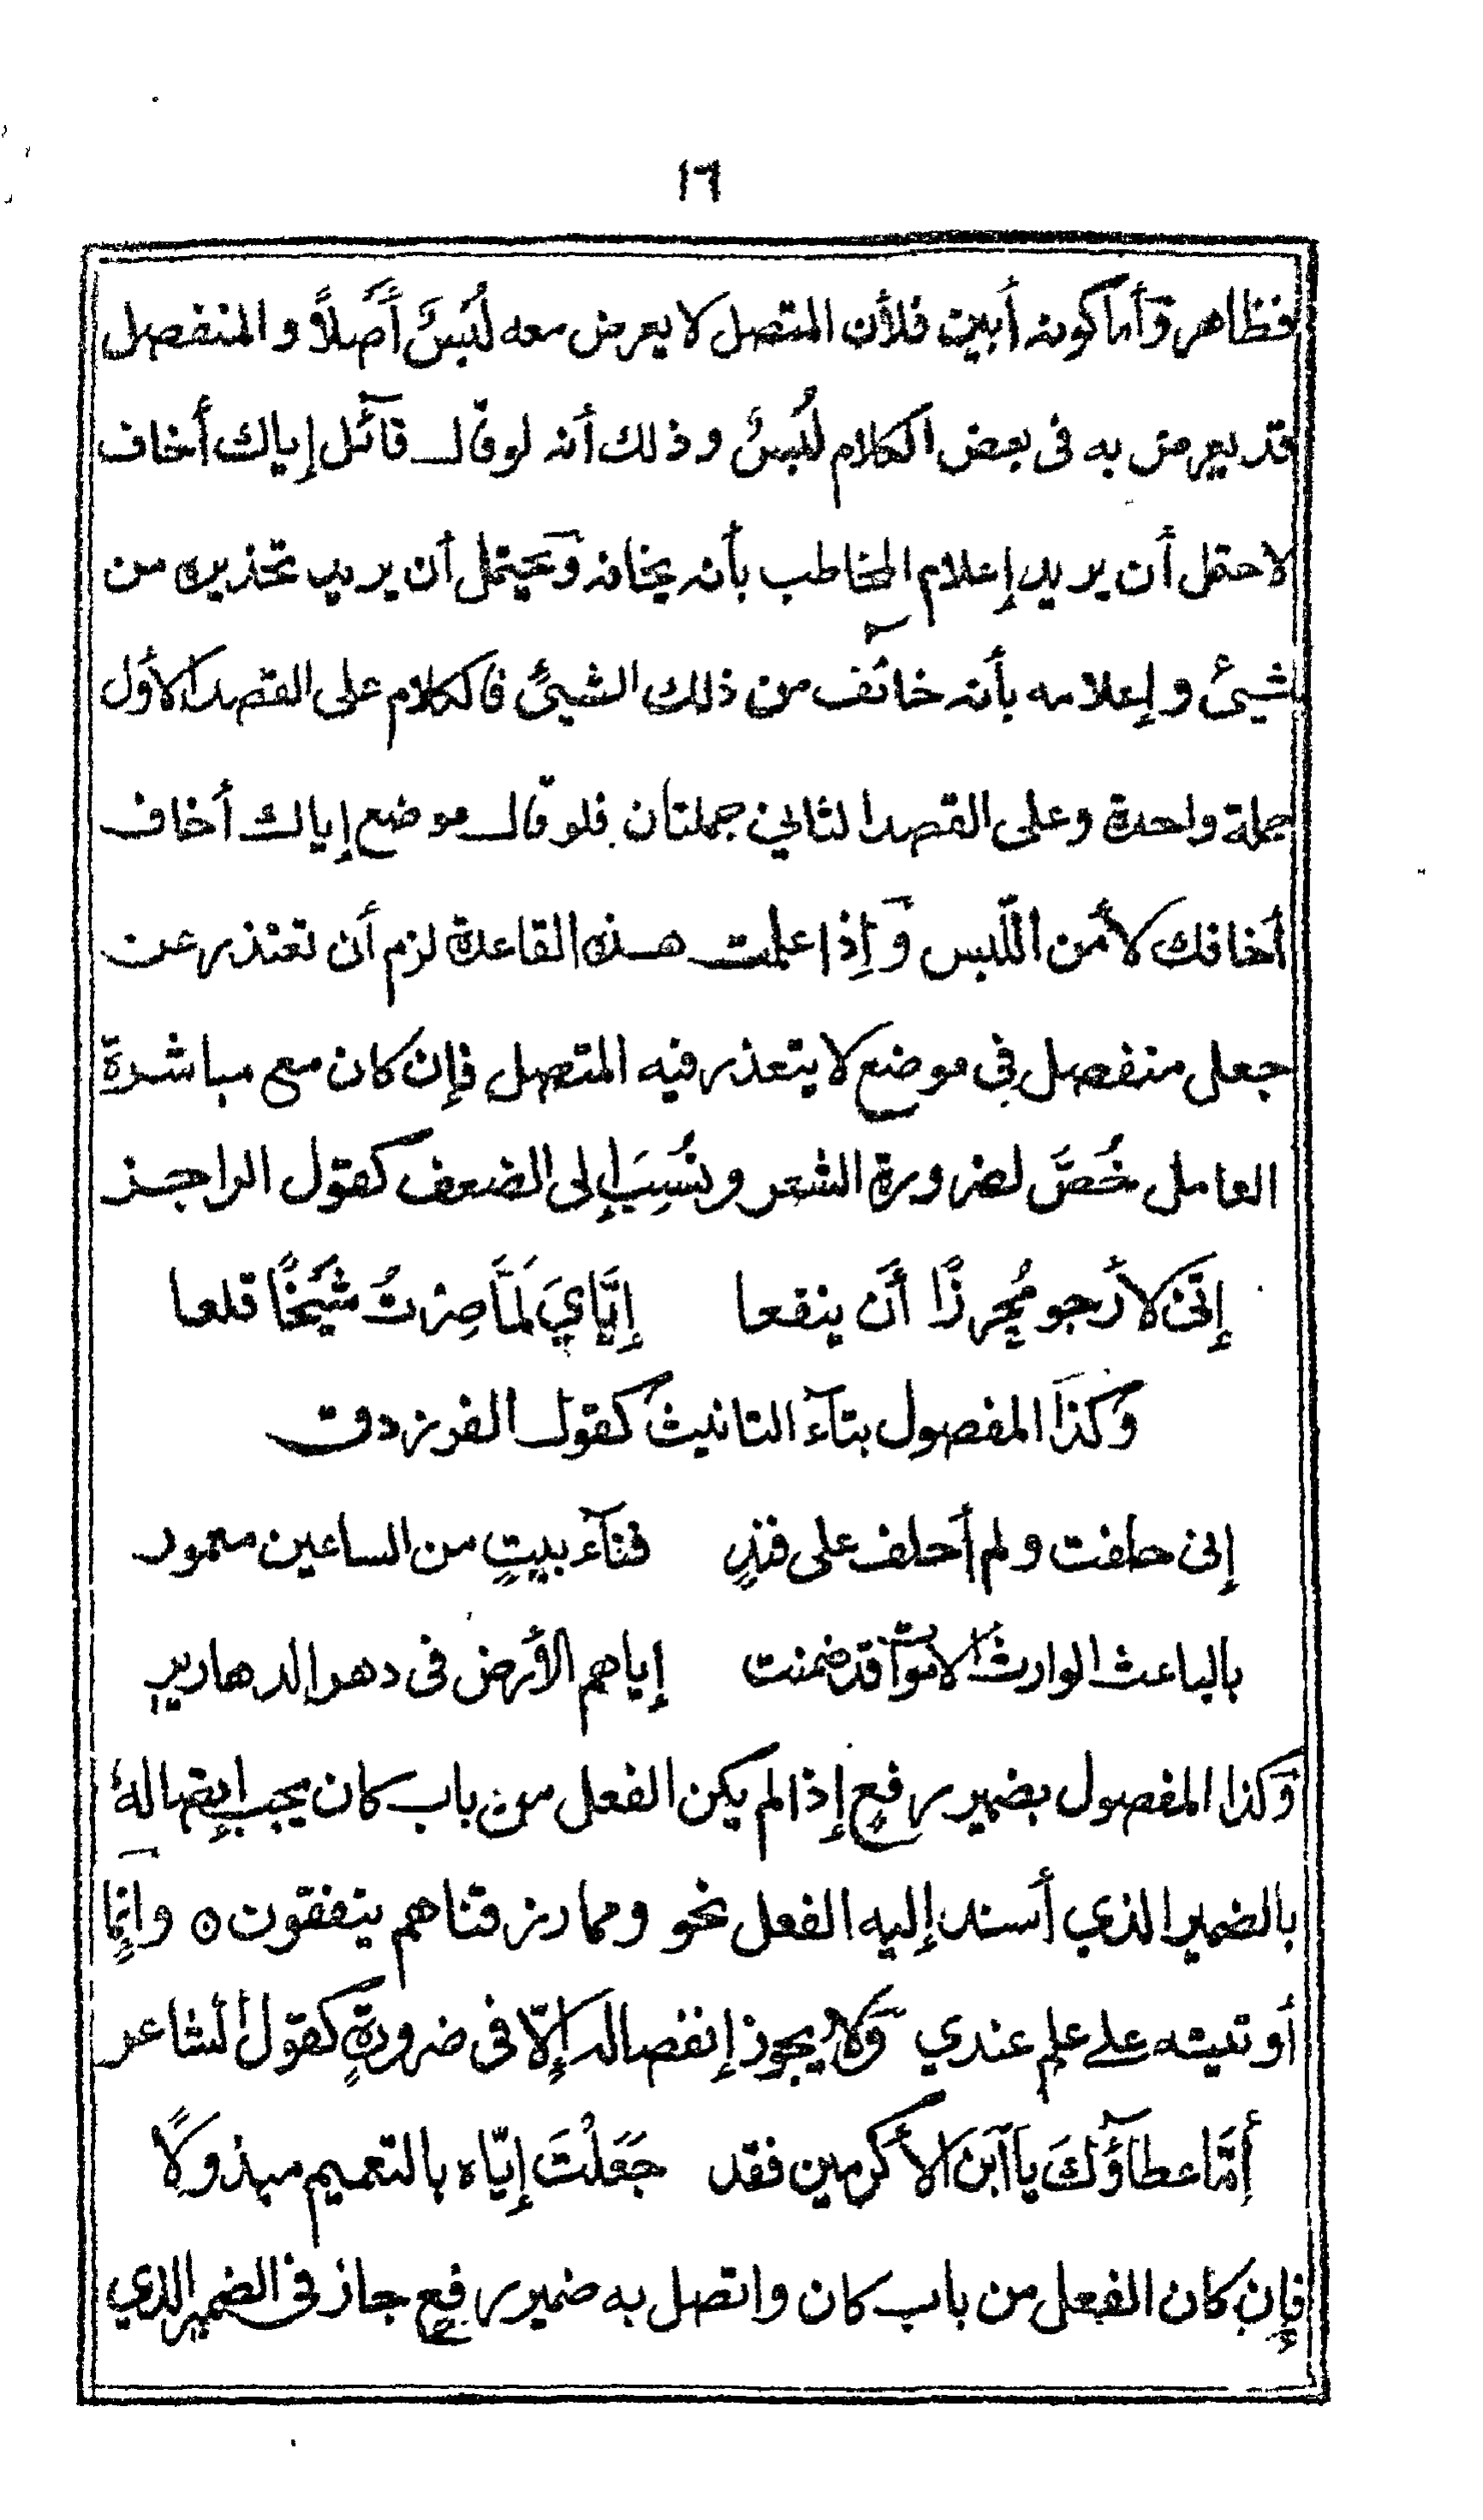 ١٦
فظاهر وأما كونه أبين فلأن المتصل لا يعرض معه لُبْسٌ أَصْلاً والمنفصل
قد يعرض به فى بعض الكلام لُبْسٌ وذلك أنه لو قال قآئل إياك أخاف
لاحتمل أن يريد إعلام المخاطب بأنه يخافه ويحتمل أن يريد تحذيره من
شيئ وإعلامه بأنه خائف من ذلك الشيئ فالكلام على القصد الأول
جملة واحدة وعلى القصد الثاني جملتان فلو قال موضع إياك أخاف
أخافك لأمن اللّبس وَإِذا علمت هذه القاعدة لزم أن تعتذر عن
جعل منفصل في موضع لا يتعذر فيه المتصل فإن كان مع مباشرة
العامل خُصَّ لضرورة الشعر ونُسِبَ إلى الضعف كقول الراجز
إنّى لأرجو مُحرِزًا أَن ينفعا إِيَّايَ لَمَّا صِرْتُ شَيْخًا قلعا
وَكذَا المفصول بتآء التانيث كقول الفرزدق
إنى حلفت ولم أحلف على فندٍ فنآء بيتٍ من الساعين معمور
بالباعث الوارث الأموآت قد ضمنت إياهم الأرض فى دهر الدهارير
وَكذا المفصول بضمير رفعٍ إذا لم يكن الفعل من باب كان يجب إتصالهُ
بالضمير الذي أسند إليه الفعل نحو ومما رزقناهم ينفقون ٥ وإنما
أوتيته على علم عندي وَلا يجوز إنفصاله إِلّا فى ضرورةٍ كقول الشاعر
أمّا عطاؤُكَ يا ابن الأكرمين فقد جَعَلْتَ إيّاه بالتعميم مبذولًا
فإن كان الفعل من باب كان واتصل به ضمير رفعٍ جاز فى الضمير الذي